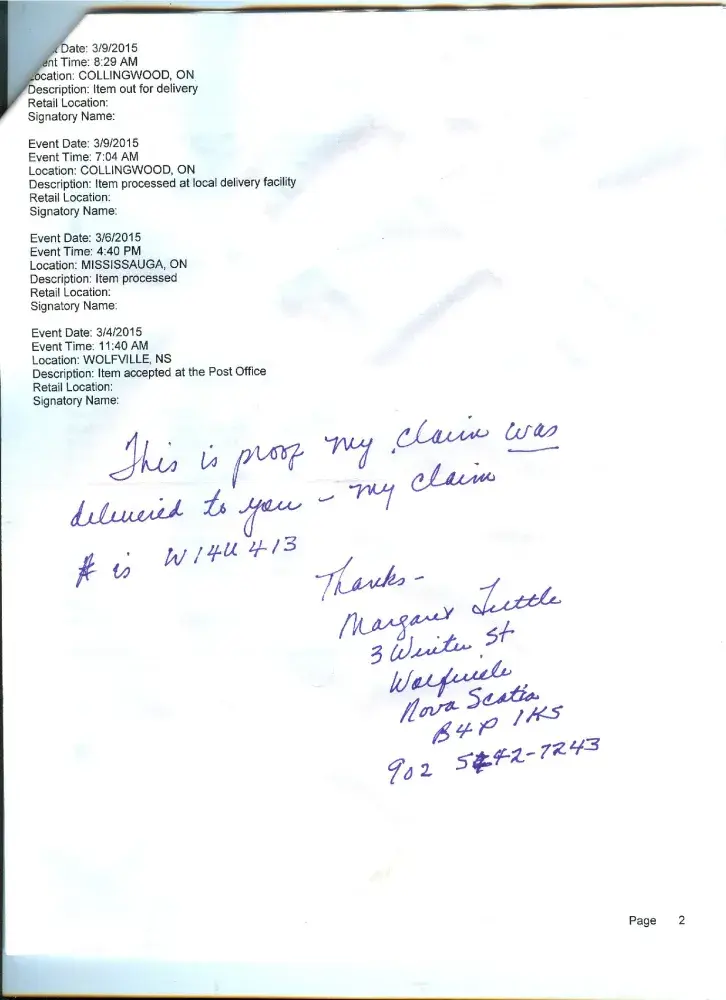 Date: 3/9/2015
ent Time: 8:29 AM
Location: COLLINGWOOD, ON
Description: Item out for delivery
Retail Location:
Signatory Name:
Event Date: 3/9/2015
Event Time: 7:04 AM
Location: COLLINGWOOD, ON
Description: Item processed at local delivery facility
Retail Location:
Signatory Name:
Event Date: 3/6/2015
Event Time: 4:40 PM
Location: MISSISSAUGA, ON
Description: Item processed
Retail Location:
Signatory Name:
Event Date: 3/4/2015
Event Time: 11:40 AM
Location: WOLFVILLE, NS
Description: Item accepted at the Post Office
Retail Location:
Signatory Name:
This is proof my claim was
delivered to you - my claim
# is W14U413
Thanks -
Margaret Tuttle
3 Winter St
Wolfville
Nova Scotia
B4P 1K5
902 542-7243
Page 2